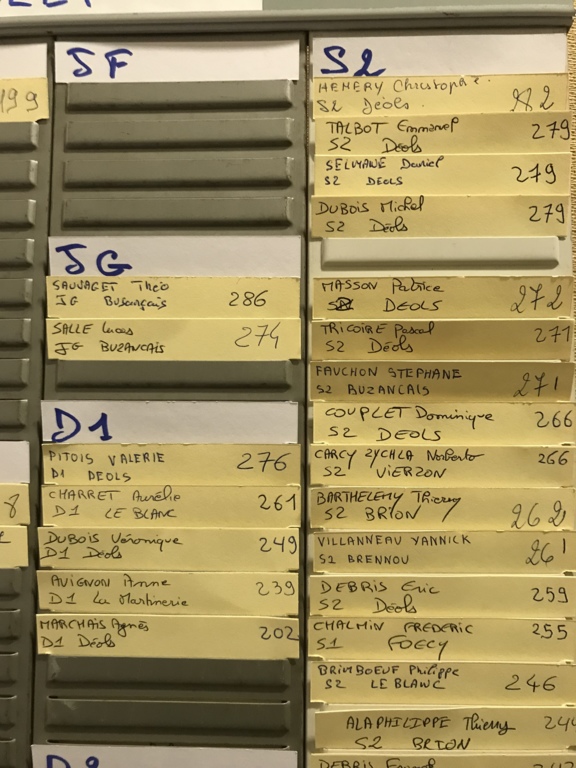 199
8
JF
JG
SAUVAGET Théo
JG Busançais 286
SALLE Lucas
JG BUZANCAIS 274
D1
PITOIS VALERIE 276
D1 DEOLS
CHARRET Aurélie 261
D1 LE BLANC
DUBOIS Véronique 249
D1 Déols
AVIGNON Anne 239
D1 La Martinerie
MARCHAIS Agnès 202
D1 Déols
S2
HEMERY Christophe
S2 Déols
TALBOT Emmanuel 279
S2 Deols
SELMANE Daniel
S2 DEOLS 279
DUBOIS Michel 279
S2 Déols
MASSON Patrice 272
DEOLS
TRICOIRE Pascal 271
S2 Déols
FAUCHON STEPHANE 271
S2 BUZANCAIS
COUPLET Dominique 266
S2 DEOLS
CARCY ZYCHLA Norberto 266
S2 VIERZON
BARTHELEMY Thierry 262
S2 BRION
VILLANNEAU YANNICK 261
S2 BRENNOU
DEBRIS Eric 259
S2 Déols
CHALMIN FREDERIC 255
S1 FOECY
BRIMBOEUF Philippe
S2 LE BLANC 246
ALAPHILIPPE Thierry 244
S2 BRION
DEBRIS